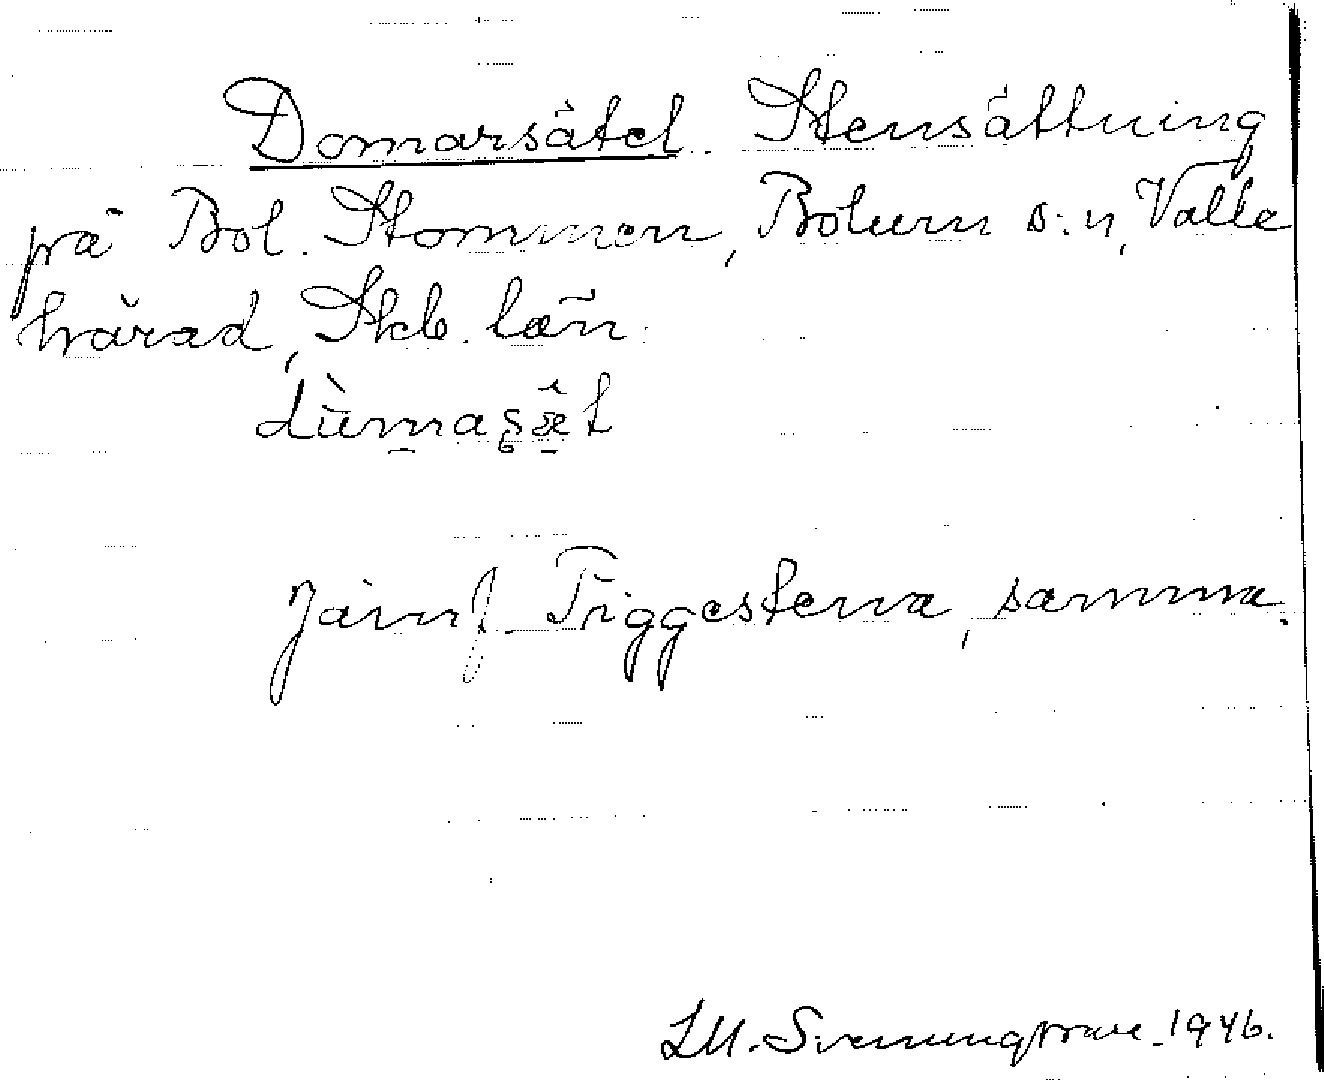 Domarsätet. Stensättning
på Bol. Stommen, Bolum s:n, Valle
härad, Skb. län.
dùmasæ̂t
Jämf. Tiggestena, samma.
LM. Svenungsson 1946.